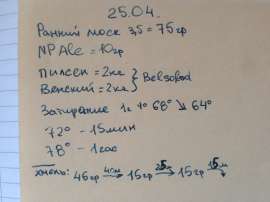 25.04.
Ранний моск 3,5 = 75гр
NP Ale = 10гр
Пилсен = 2кг } Belgobod
Венский = 2кг
Затирание 1г 1° 68° ↘ 64°
72° - 15мин
78° - 1час
хмель: 46гр 40м→ 15гр 25м→ 15гр 15м→